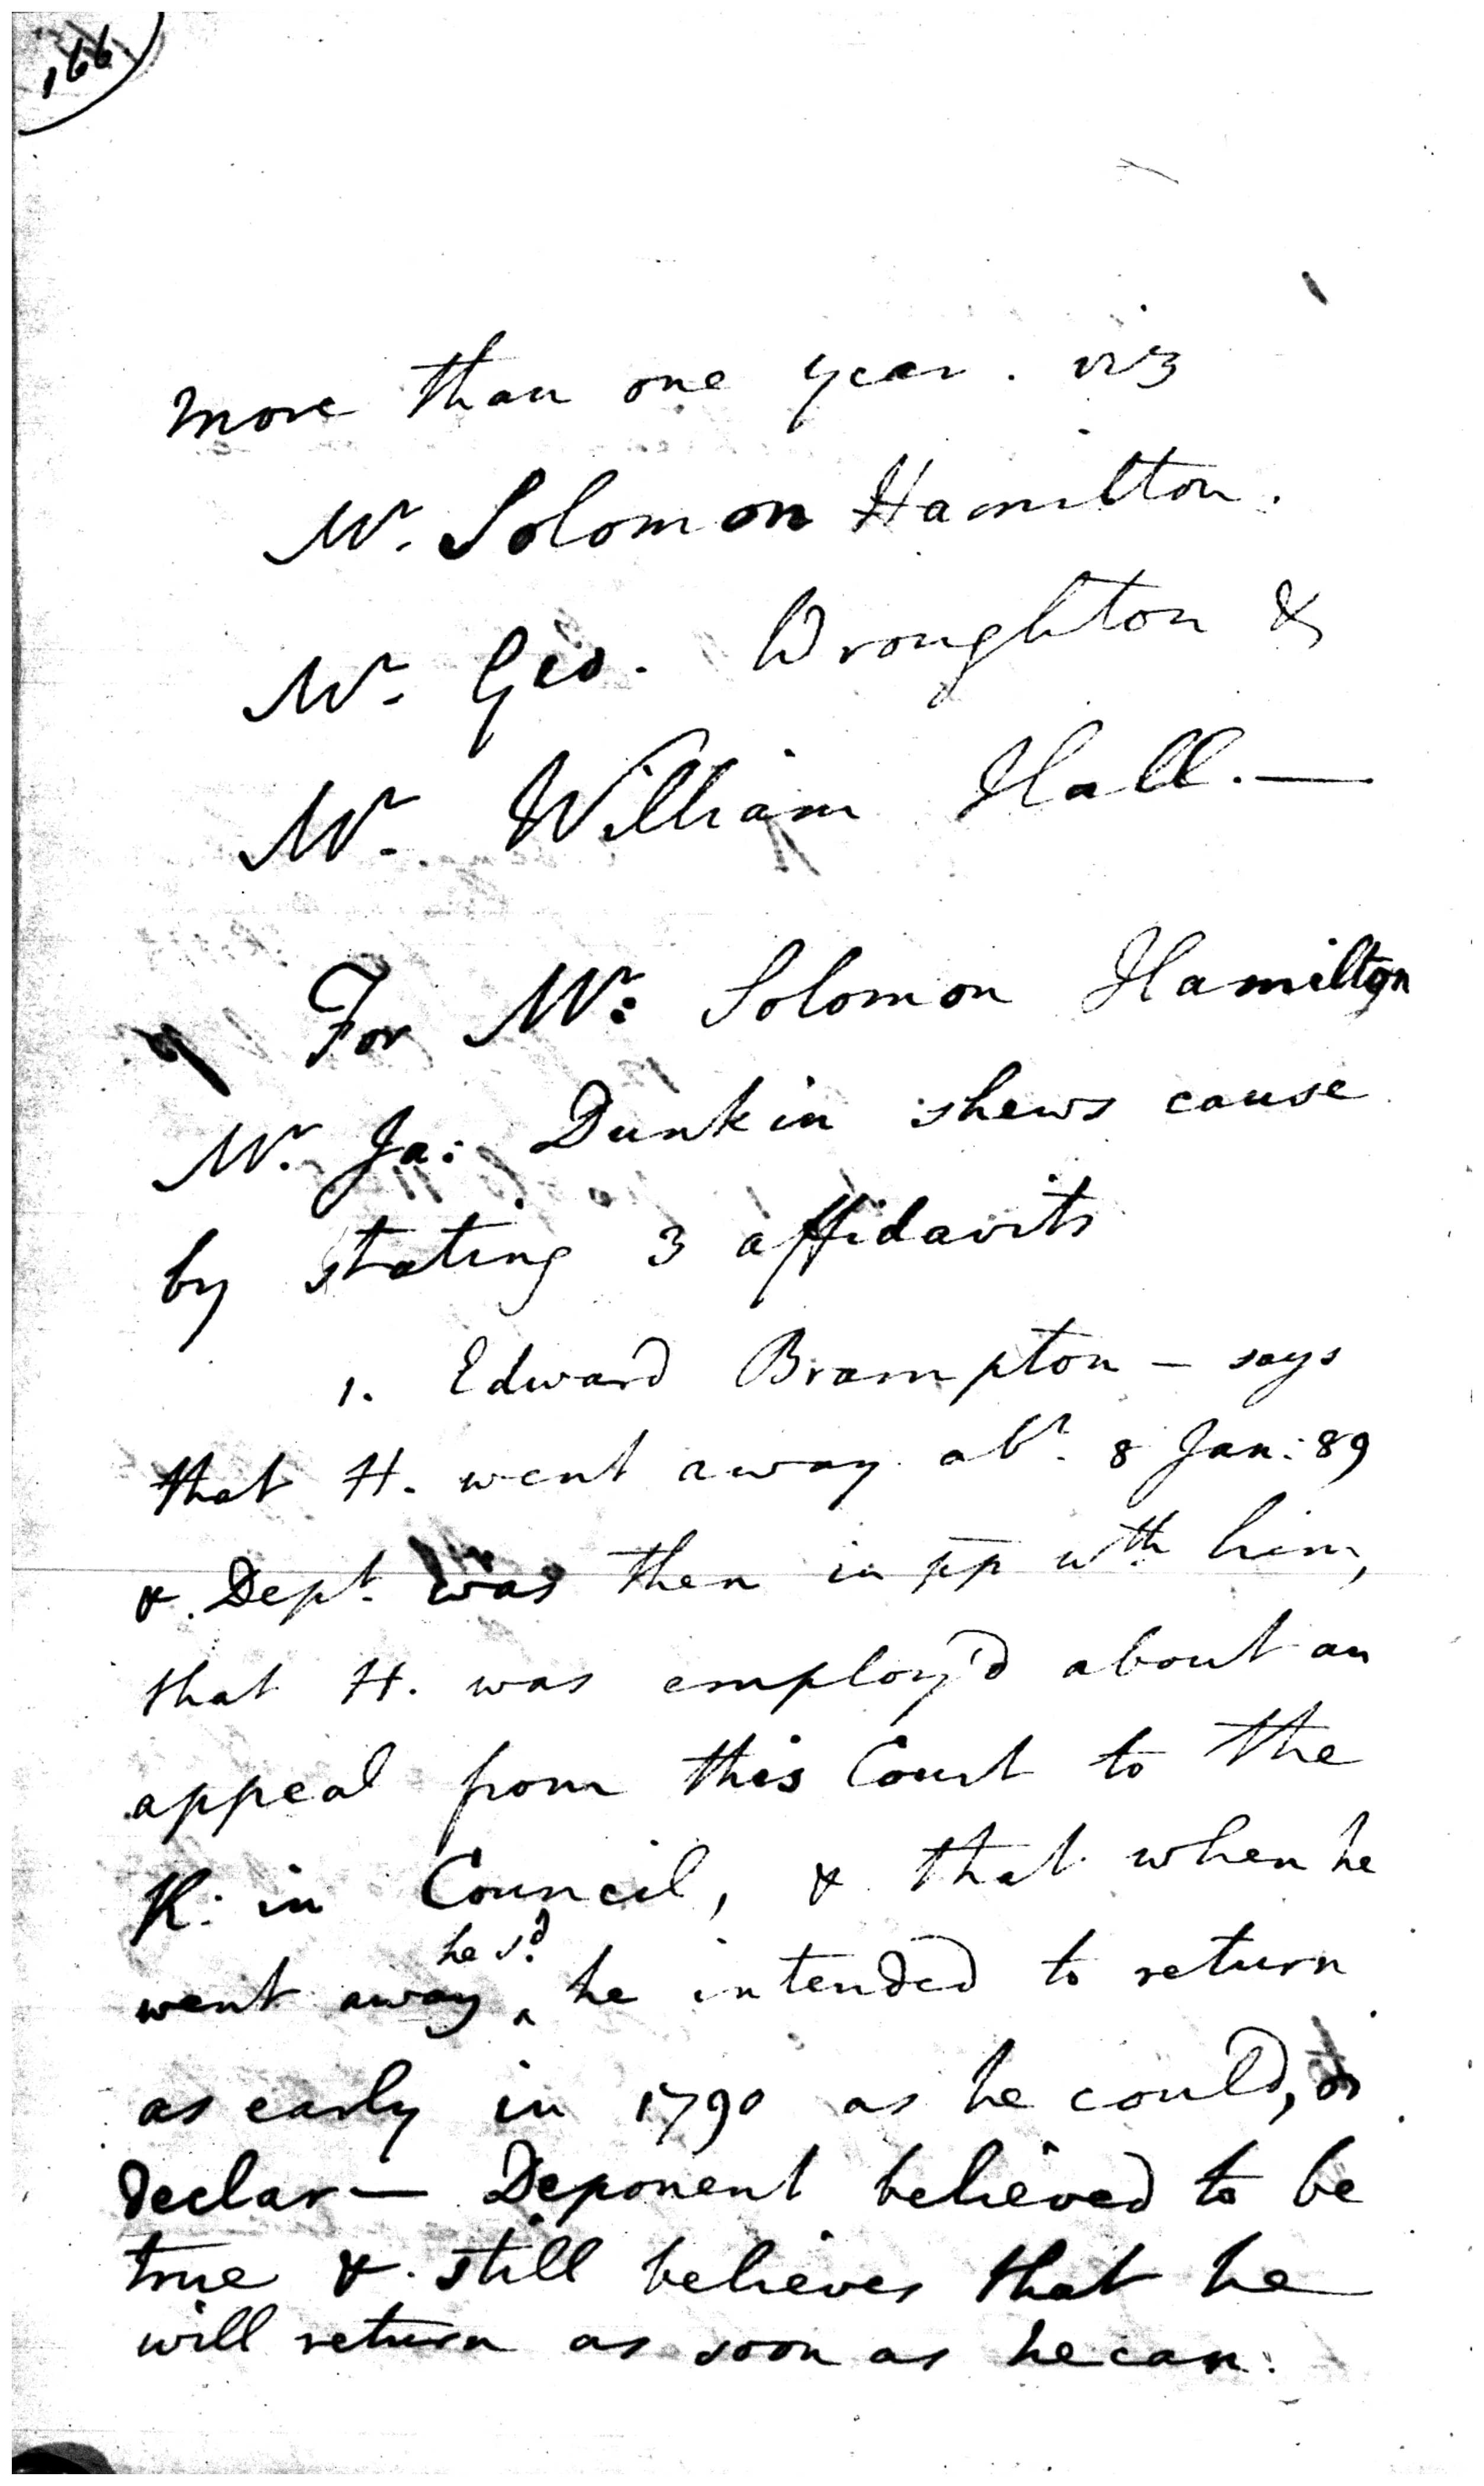 166
more than one year. viz
Mr. Solomon Hamilton.
Mr. Geo. Wroughton &
Mr. William Hall. —
For Mr: Solomon Hamilton
Mr. Ja: Dunkin shews cause
by stating 3 affidavits
1. Edward Brampton - says
that H. went away abt. 8 Jan: 89
&. Dept. was then in pp wth him,
that H. was employ'd about an
appeal from this Court to the
K: in Council, & that when he
he sd.
went away ^ he intended to return
as early in 1790 as he could,
declar— Deponent believed to be
true &. still believes that he
will return as soon as he can.